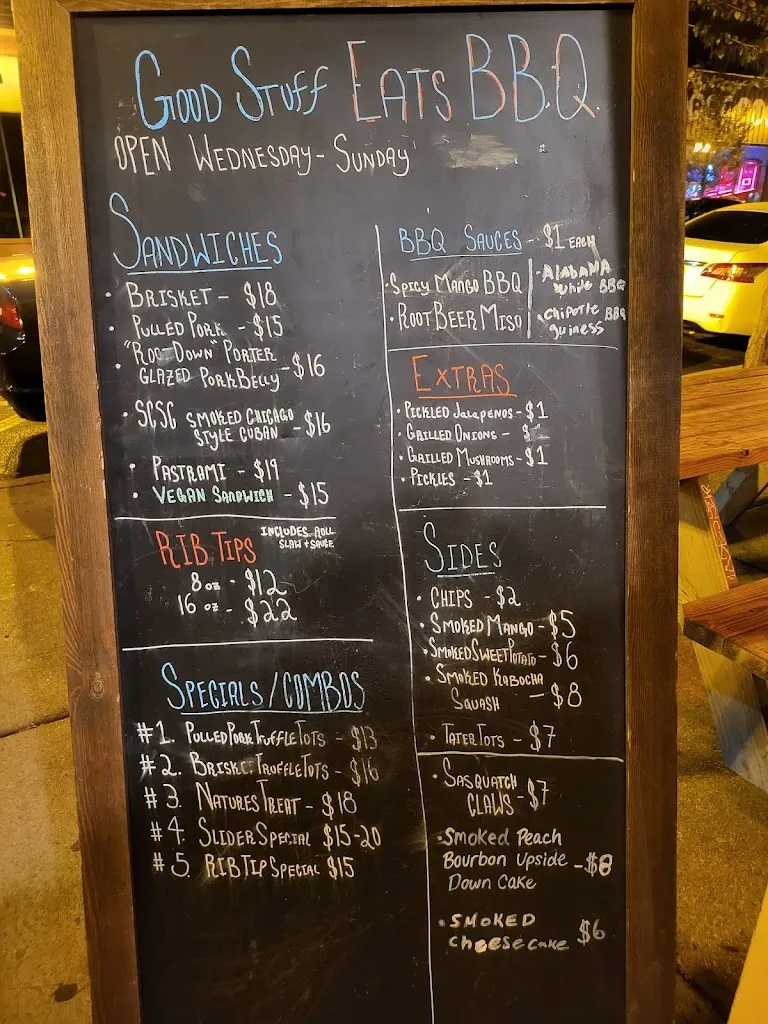 GOOD STUFF EATS BBQ.
OPEN WEDNESDAY - SUNDAY
SANDWICHES
• BRISKET - $18
• PULLED PORK - $15
• "ROOT DOWN" PORTER
GLAZED PORK BELLY - $16
• SCSC SMOKED CHICAGO
STYLE CUBAN - $16
• PASTRAMI - $19
• VEGAN SANDWICH - $15
RIB TIPS INCLUDES ROLL
SLAW + SAUCE
8 oz - $12
16 oz - $22
SPECIALS/COMBOS
#1. PULLED PORK TRUFFLE TOTS - $13
#2. BRISKET TRUFFLE TOTS - $16
#3. NATURES TREAT - $18
#4. SLIDER SPECIAL $15-20
#5. RIB TIP SPECIAL $15
BBQ SAUCES - $1 EACH
• SPICY MANGO BBQ
• ROOT BEER MISO
• ALABAMA
White BBQ
• chipotle BBQ
guiness
EXTRAS
• PICKLED JALAPENOS - $1
• GRILLED ONIONS - $
• GRILLED MUSHROOMS - $1
• PICKLES - $1
SIDES
• CHIPS - $2
• SMOKED MANGO - $5
• SMOKED SWEET POTATO - $6
• SMOKED KABOCHA
SQUASH - $8
• TATER TOTS - $7
• SASQUATCH
CLAWS - $7
• Smoked Peach
Bourbon Upside - $8
Down Cake
• SMOKED
cheesecake $6